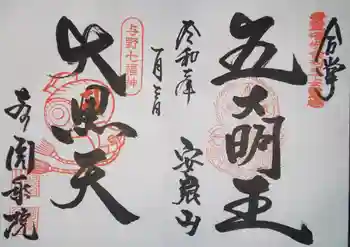 合掌
五大明王
令和 年
一月 日
安養山
与野七福神
大黒天
圓乗院